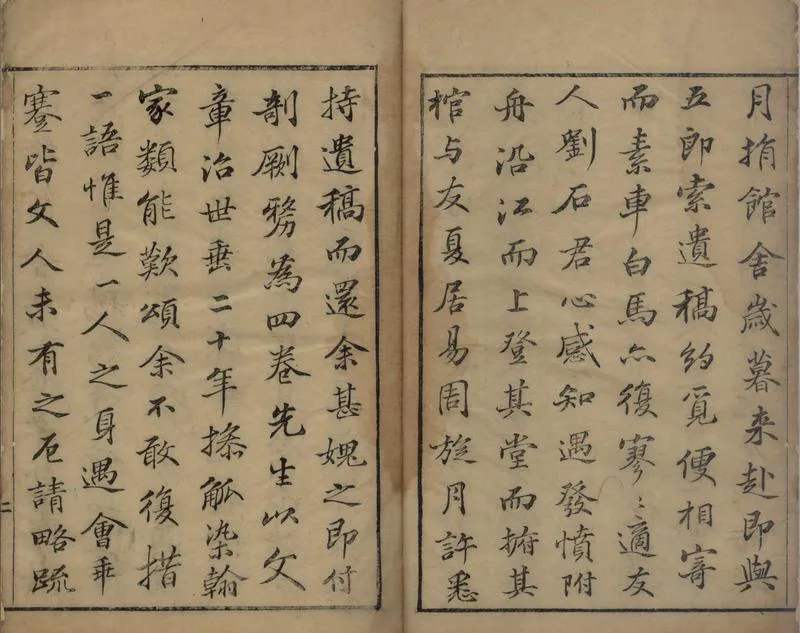 月捐館舍歲暮来赴即與
五郎索遺稿約覓便相寄
而素車白馬亦復寥〻適友
人劉石君心感知遇發憤附
舟沿江而上登其堂而拊其
棺与友夏居易周旋月許悉
持遺稿而還余甚媿之即付
剞劂釐為四卷先生以文
章治世垂二十年操觚染翰
家類能歎頌余不敢復措
一語惟是一人之身遇會乖
蹇皆文人未有之厄請略疏
二